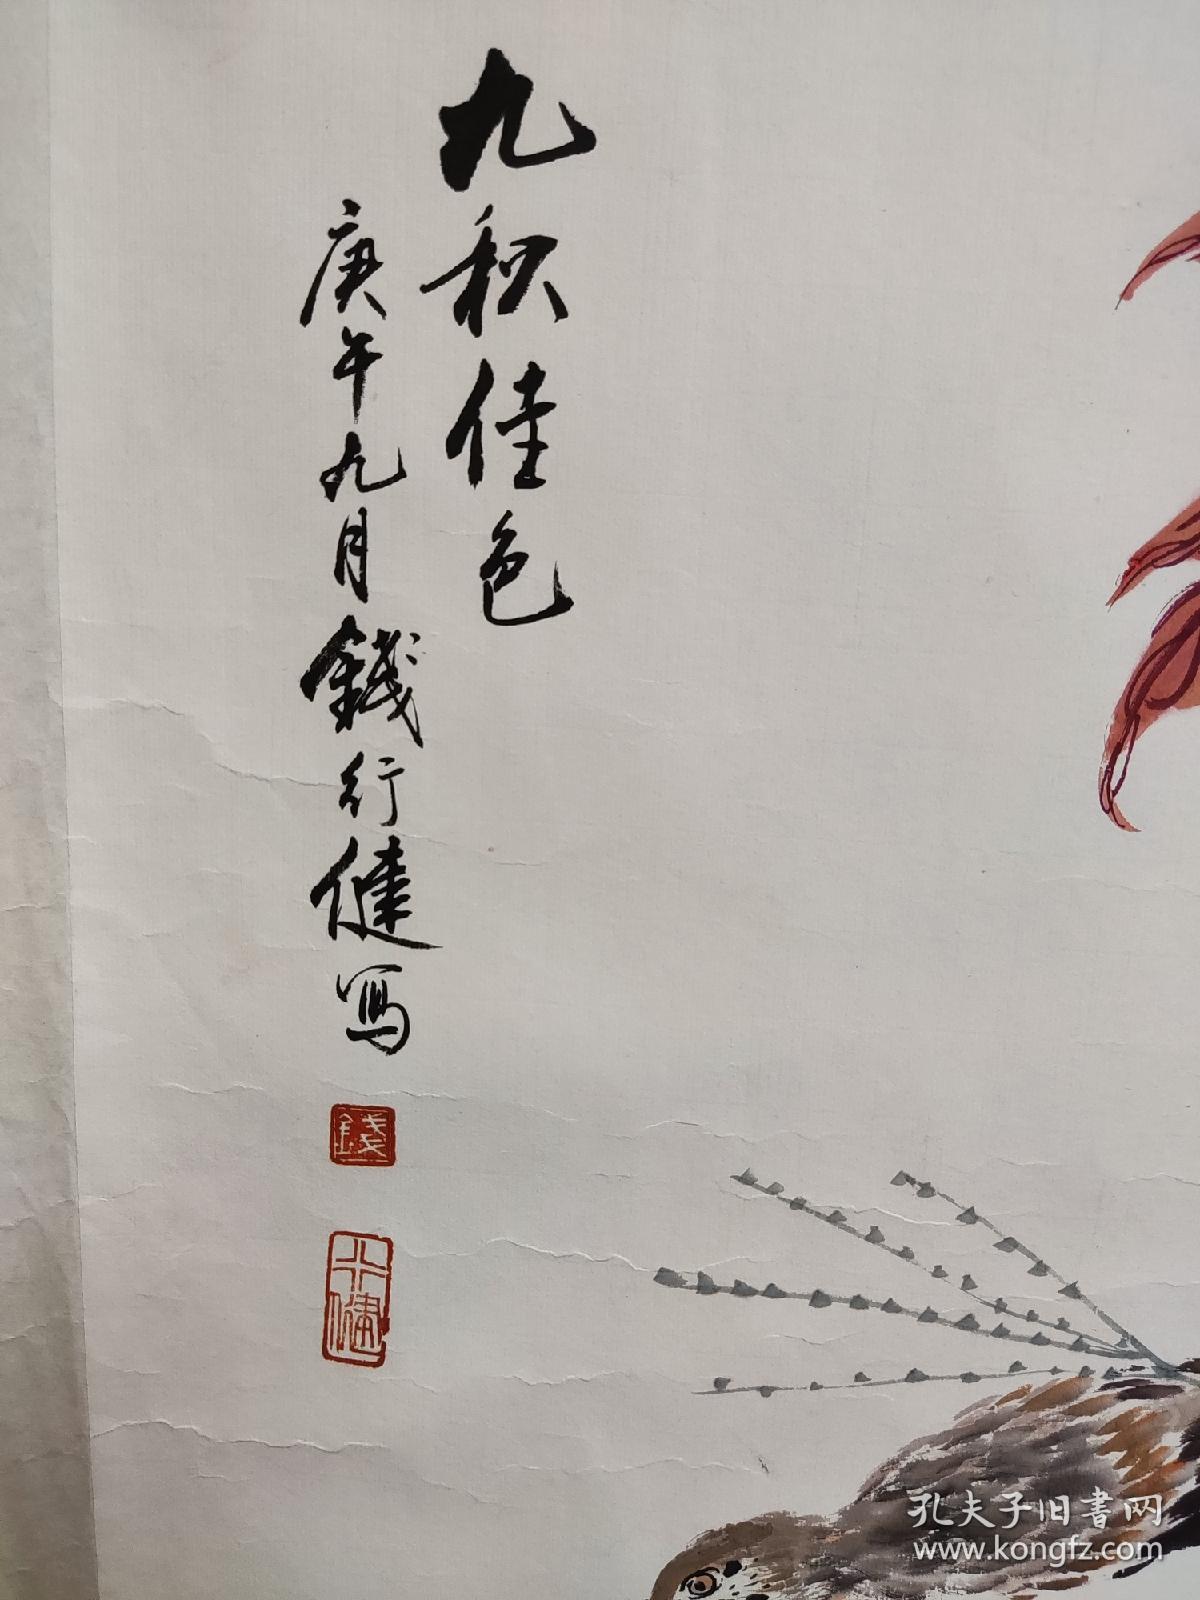 九秋佳色
庚午九月錢行健寫
錢
行健
孔夫子旧書网
www.kongfz.com